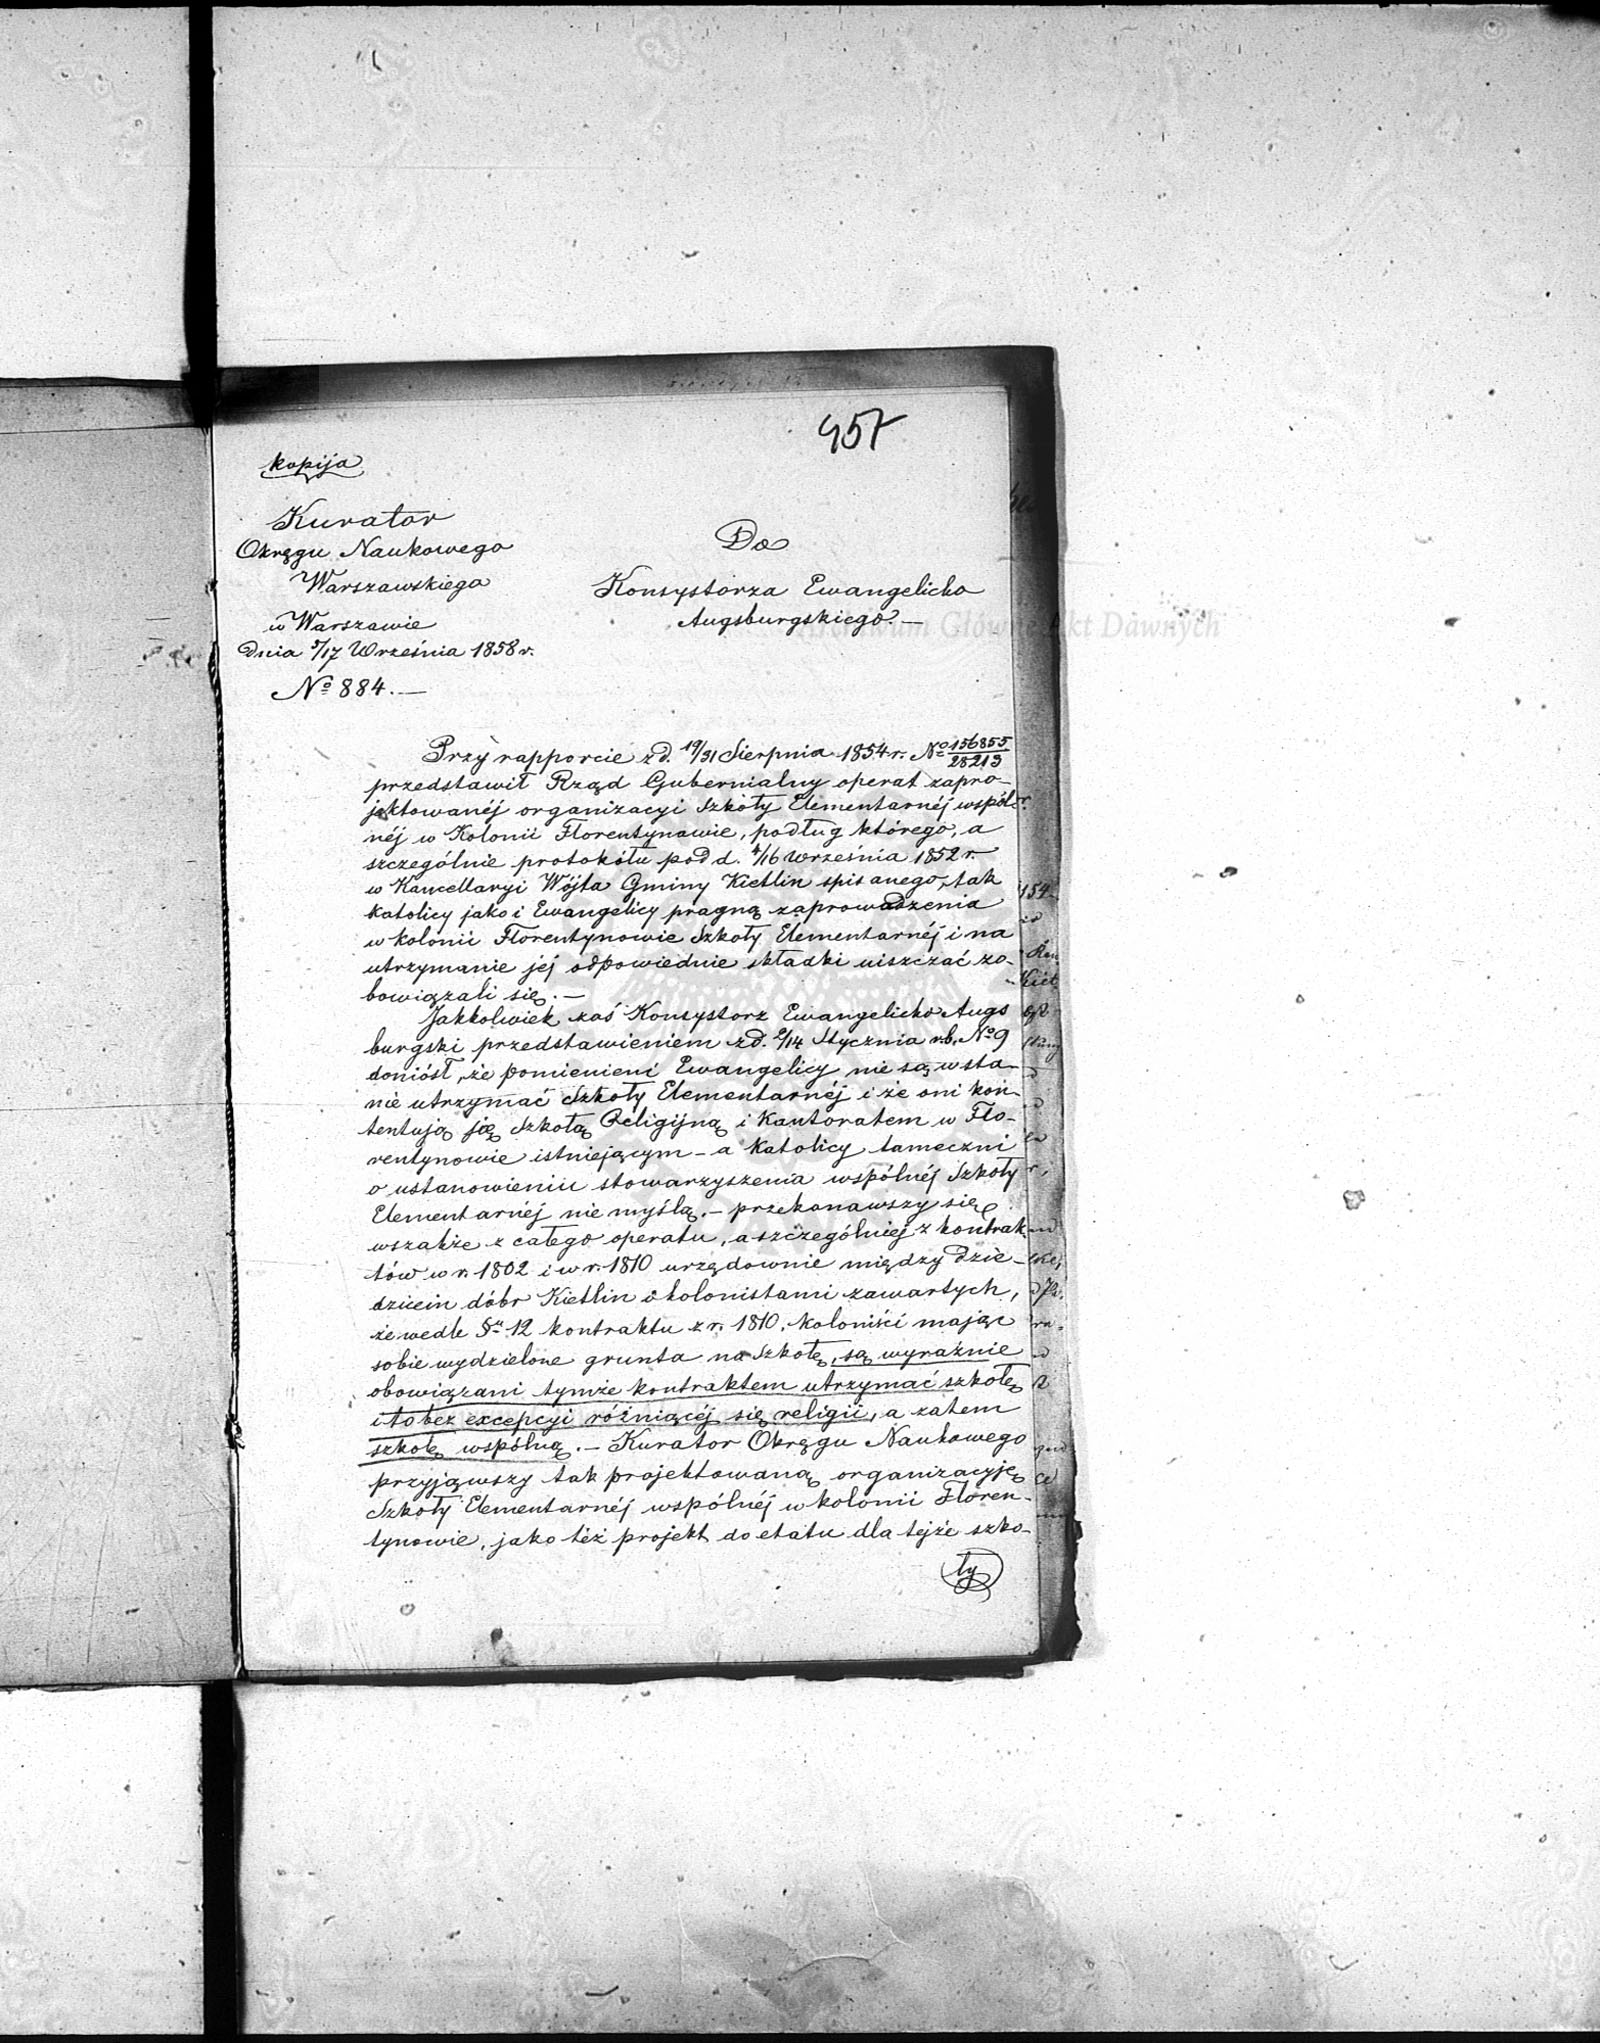 457
kopija
Kurator
Okręgu Naukowego
Warszawskiego
w Warszawie
Dnia 5/17 Września 1858 r.
No 884. —
Do
Konsystorza Ewangelicko
Augsburgskiego. —
Archiwum Główne Akt Dawnych
Przy rapporcie z d. 19/31 Sierpnia 1854 r. No 156855/28213
przedstawił Rząd Gubernialny operat zapro-
jektowanéj organizacyi Szkoły Elementarnéj wspól-
néj w Kolonii Florentynowie, podług którego, a
szczególnie protokółu pod d. 4/16 września 1852 r.
w Kancellaryi Wójta Gminy Kietlin spisanego, tak
katolicy jako i Ewangelicy pragną zaprowadzenia
w kolonii Florentynowie Szkoły Elementarnéj i na
utrzymanie jéj odpowiednie składki uiszczać zo-
bowiązali się. —
Jakkolwiek zaś Konsystorz Ewangelicko Augs
burgski przedstawieniem z d. 2/14 Stycznia r.b. No 9
doniósł, że pomienieni Ewangelicy nie są w sta-
nie utrzymać Szkoły Elementarnéj i że oni kon-
tentują się Szkołą Religijną i Kantoratem w Flo-
rentynowie istniejącym – a Katolicy tameczni
o ustanowieniu stowarzyszenia wspólnéj Szkoły
Elementarnéj nie myślą. – przekonawszy się
wszakże z całego operatu, a szczególniéj z kontrak
tów w r. 1802 i w r. 1810 urzędownie między dzie-
dzicem dóbr Kietlin i kolonistami zawartych,
że wedle §u 12 kontraktu z r. 1810, koloniści mając
sobie wydzielone grunta na Szkołę, są wyraźnie
obowiązani tymże kontraktem utrzymać szkołę
i to bez excepcyi różniącéj się religii, a zatem
szkołę wspólną. – Kurator Okręgu Naukowego
przyjąwszy tak projektowaną organizacyję
Szkoły Elementarnéj wspólnéj w kolonii Floren-
tynowie, jako téż projekt do etatu dla tejże szko-
ły